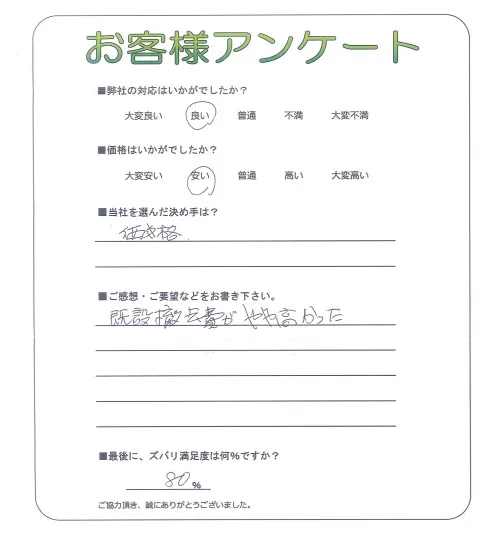 お客様アンケート
■弊社の対応はいかがでしたか？
大変良い 良い 普通 不満 大変不満
■価格はいかがでしたか？
大変安い 安い 普通 高い 大変高い
■当社を選んだ決め手は？
価格
■ご感想・ご要望などをお書き下さい。
既設撤去費がやや高かった
■最後に、ズバリ満足度は何％ですか？
80％
ご協力頂き、誠にありがとうございました。